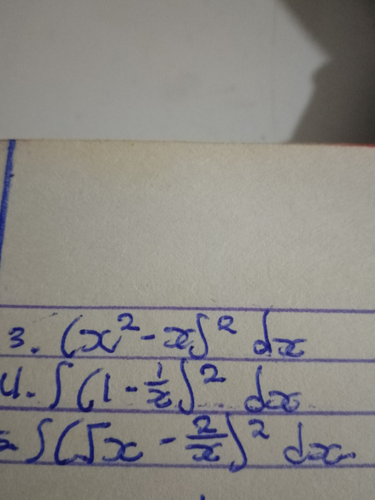 3. (x² - x)² dx
4. ∫(1 - 1/x)² dx
5. ∫(√x - 2/x)² dx